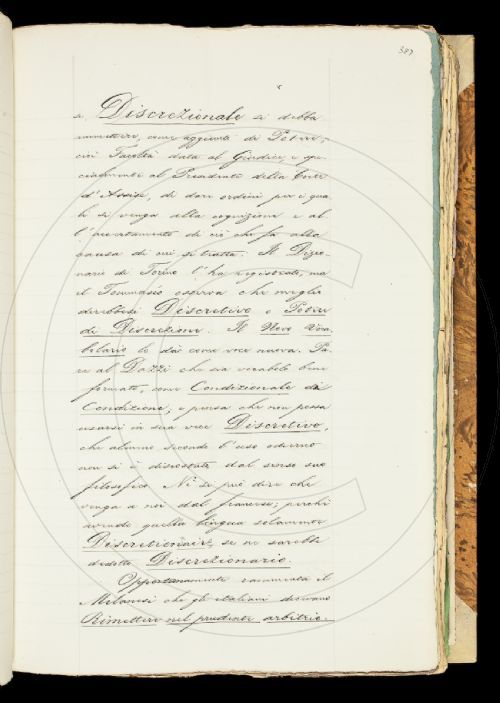 387
se Discrezionale si debba
ammettere, come aggiunto di Potere;
cioè Facoltà data al Giudice, e spe-
cialmente al Presidente della Corte
d'Assise, di dare ordini per i qua-
li si venga alla cognizione e al
l'accertamento di ciò che fa alla
causa di cui si tratta. Il Dizio-
nario di Torino l'ha registrato, ma
il Tommaséo osserva che meglio
direbbesi Discretivo o Potere
di Discrezione. Il Novo Voca-
bilario lo dà come voce nuova. Pa-
re al Pozzi che sia vocabolo bene
formato, come Condizionale da
Condizione, e pensa che non possa
usarsi in sua vece Discretivo,
che almeno secondo l'uso odierno
non si è discostato dal senso suo
filosofico. Nè si può dire che
venga a noi dal francese; perchè
avendo quella lingua solamente
Discretionnaire, se ne sarebbe
dedotto Discrezionario.
Opportunamente rammenta il
Milanesi che gli italiani dicevano
Rimettere nel prudente arbitrio.